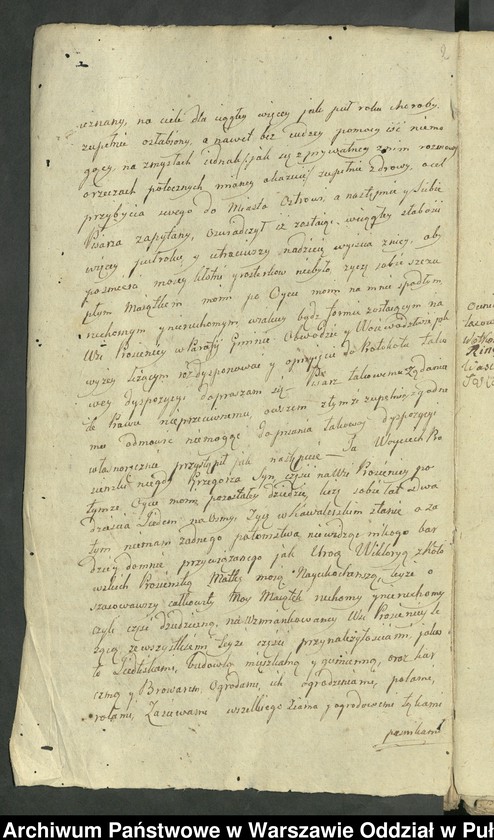 2
uznany, na ciele dla ciągłey więcey jak puł roku choroby,
zupełnie osłabiony, a nawet bez cudzey pomocy iść niemo
gący, na zmysłach jednak, jak się z przyzwoitey z nim rozmowy
o rzeczach potocznych mianey okazuie, zupełnie zdrowy, o cel
przybycia swego do Miasta Ostrowi, a następnie y Siebie
Pisarza zapytany, oswiadczył iż zostaiąc w ciągłey słabości
więcey pułroku, y utraciwszy nadzieię wyiścia z niey, aby
po śmierci moiey kłótni y rosterkow niebyło, życzę sobie szczu
płym Maiątkiem moim po Oycu moim na mnie spadłym,
ruchomym y nieruchomym, w całey bądz formie zostaiącym na
Wsi Prosienicy w Parafij Gminie Obwodzie y Woiewodztwie jak
wyżey leżącym rozdysponować y o przyięcie do Protokułu tako
wey dyspozycyi dopraszam się. Pisarz takowemu żądaniu
że Prawu nieprzeciwnemu, owszem z tymże zupełnie zgodne
mu odmówić niemogąc do pisania takowey dyspozycyi
własnoręcznie przystąpił jak następuie — Ja Woyciech Pro
sienski niegdy Grzegorza Syn, część na Wsi Prosienicy po
tymże Oycu moim pozostałey dziedzic, licząc sobie lat dwa
dzieścia Siedem, zważywszy, żyjąc w Kawalerskim stanie a za
tym niemam żadnego potomstwa, niewidząc nikogo bar
dziey do mnie przywiązanego jak Urod. Wiktoryą z Kóło
wskich Prosieńską Matkę moią Nayukochańszą, teyże o
szacowawszy całkowity Moy Maiątek ruchomy y nieruchomy
czyli część dziedziczną, na wzmiankowaney Wsi Prosienicy le
żącą ze wszystkiemi teyże części przynależytościami, jako
to Siedliskami, budowlą mieszkalną y gumienną, oraz kar
czmą y Browarem, Ogrodami, ich ogrodzeniami, polami,
rolami, Zasiewami wszelkiego ziarna y ogrodowemi, łąkami
pastnikami
Archiwum Państwowe w Warszawie Oddział w Puł